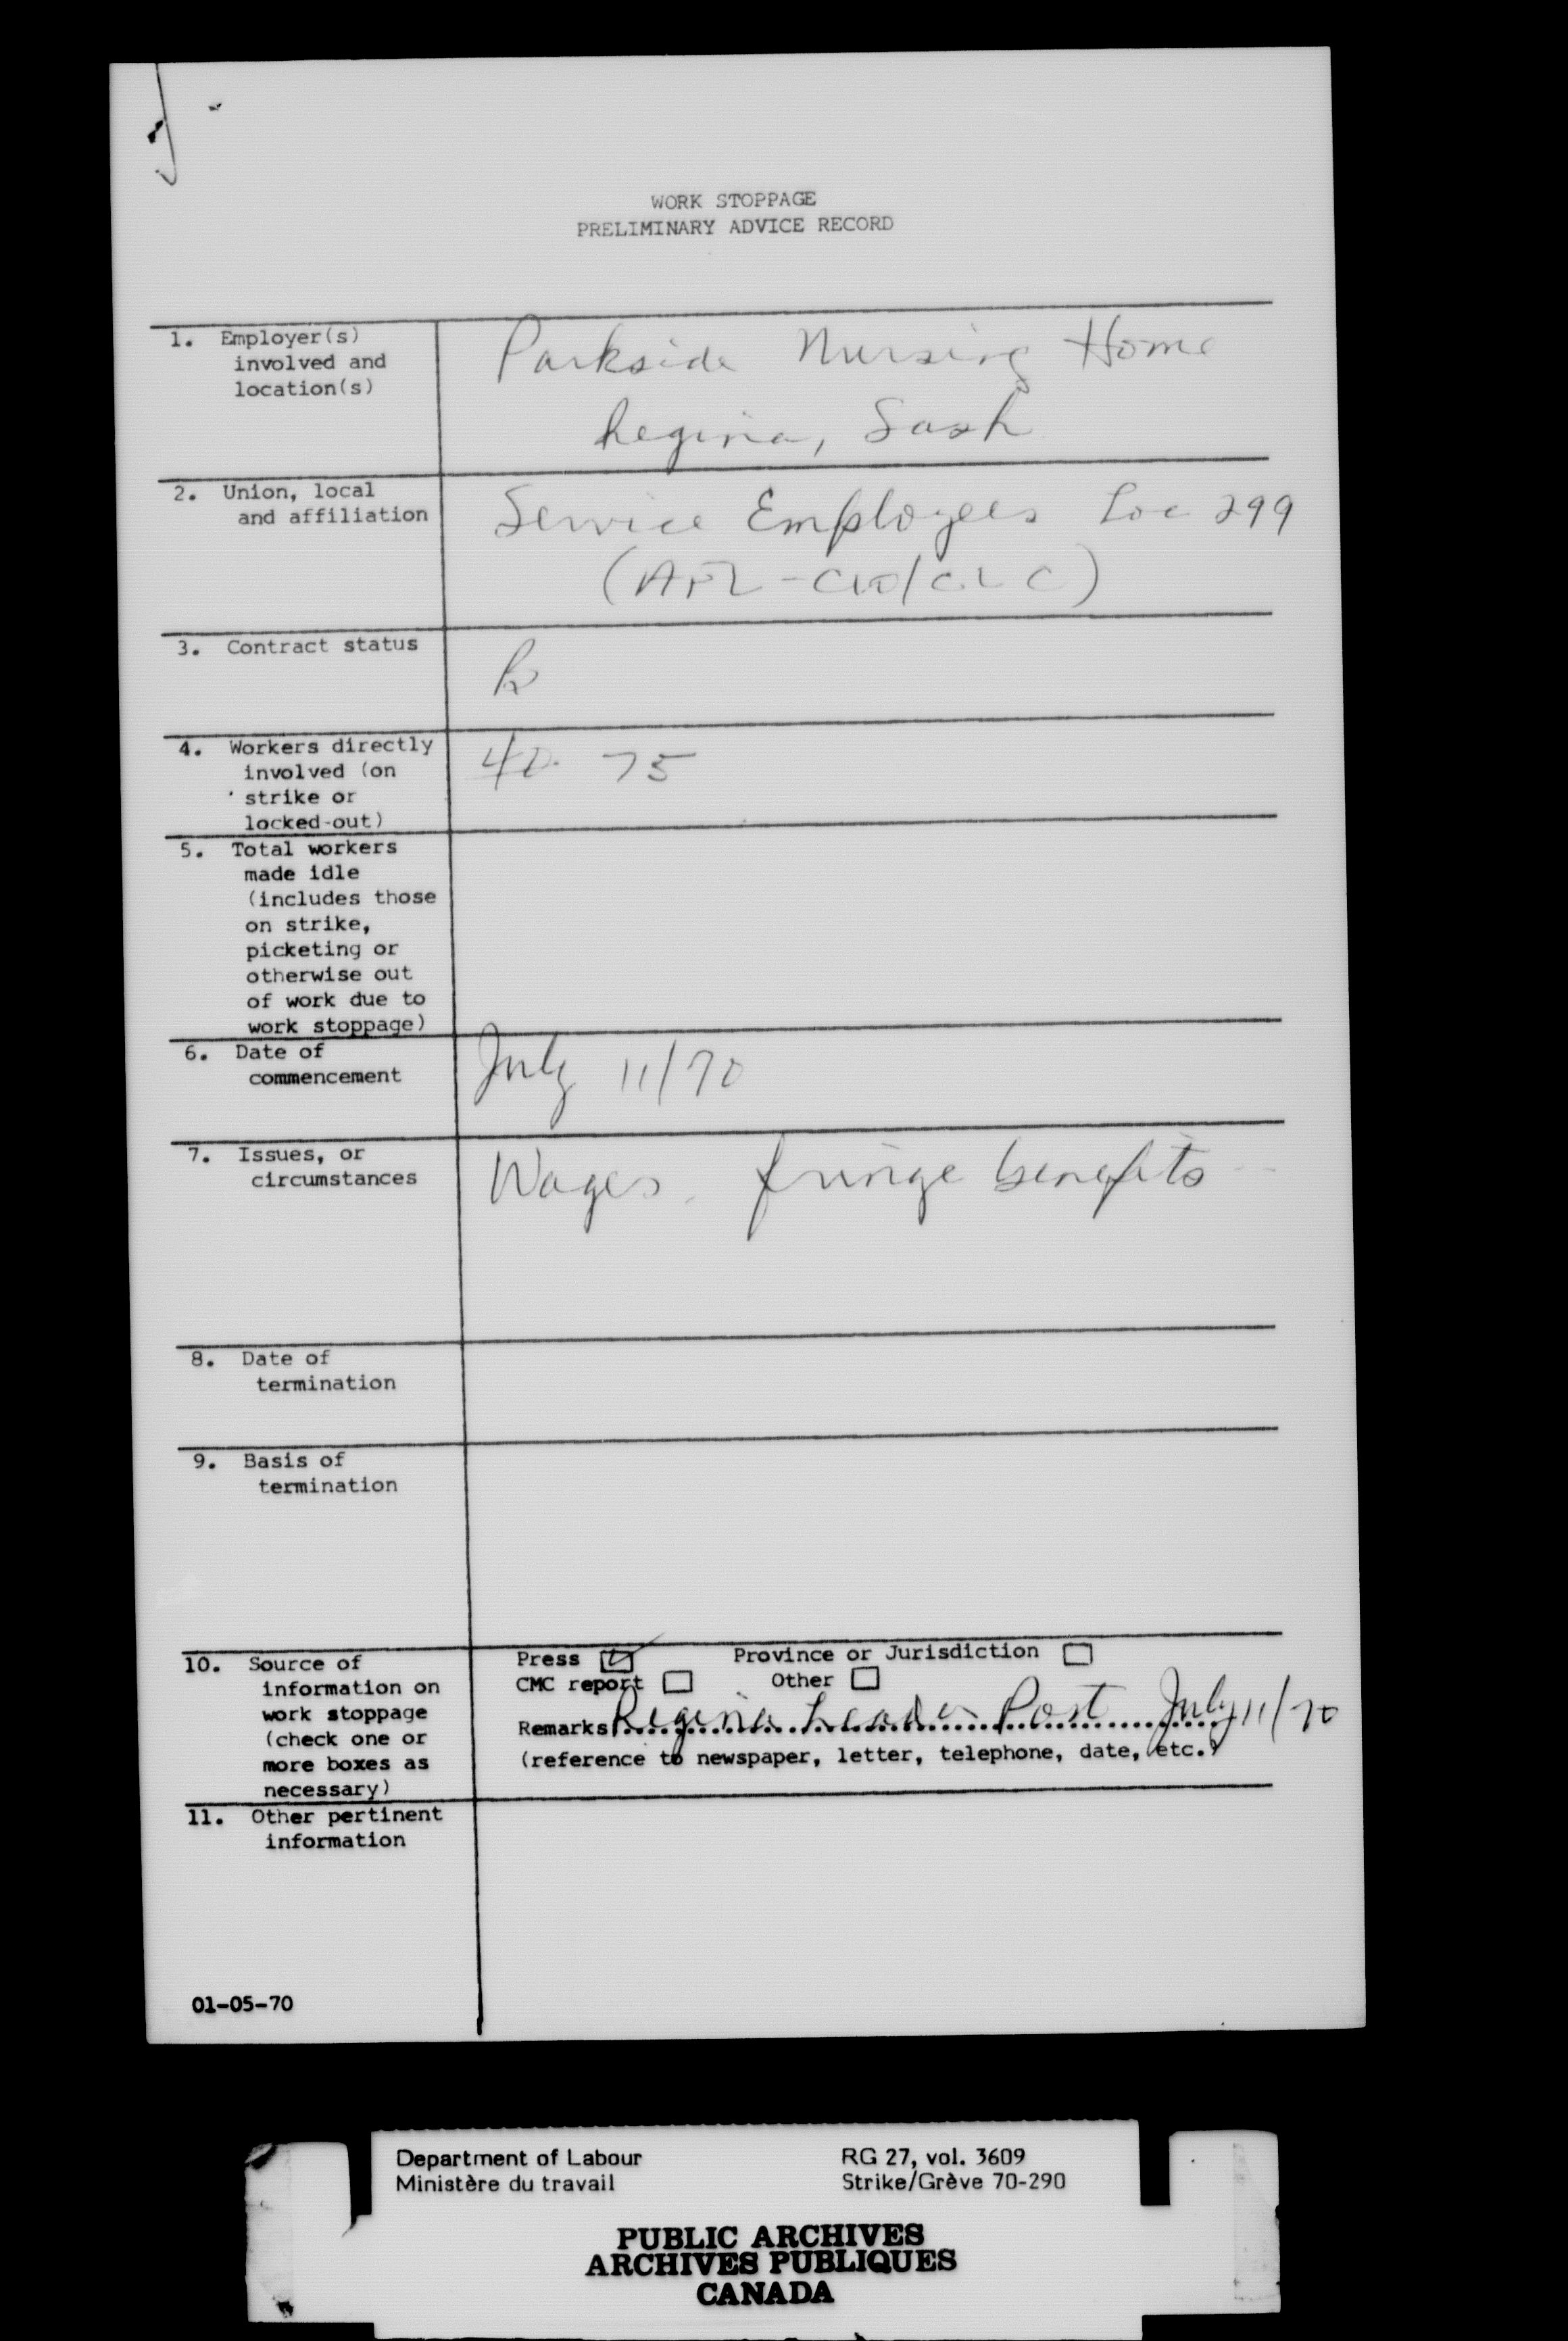 WORK STOPPAGE
PRELIMINARY ADVICE RECORD
1. Employer(s)
involved and
location(s)
Parkside Nursing Home
Regina, Sask
2. Union, local
and affiliation
Service Employees Loc 299
(AFL-CIO/CLC)
3. Contract status
R
4. Workers directly
involved (on
strike or
locked-out)
40 75
5. Total workers
made idle
(includes those
on strike,
picketing or
otherwise out
of work due to
work stoppage)
6. Date of
commencement
July 11/70
7. Issues, or
circumstances
Wages. fringe benefits
8. Date of
termination
9. Basis of
termination
10. Source of
information on
work stoppage
(check one or
more boxes as
necessary)
Press Province or Jurisdiction
CMC report Other
Remarks Regina Leader Post July 11/70
(reference to newspaper, letter, telephone, date, etc.)
11. Other pertinent
information
01-05-70
Department of Labour
Ministère du travail
RG 27, vol. 3609
Strike/Grève 70-290
PUBLIC ARCHIVES
ARCHIVES PUBLIQUES
CANADA